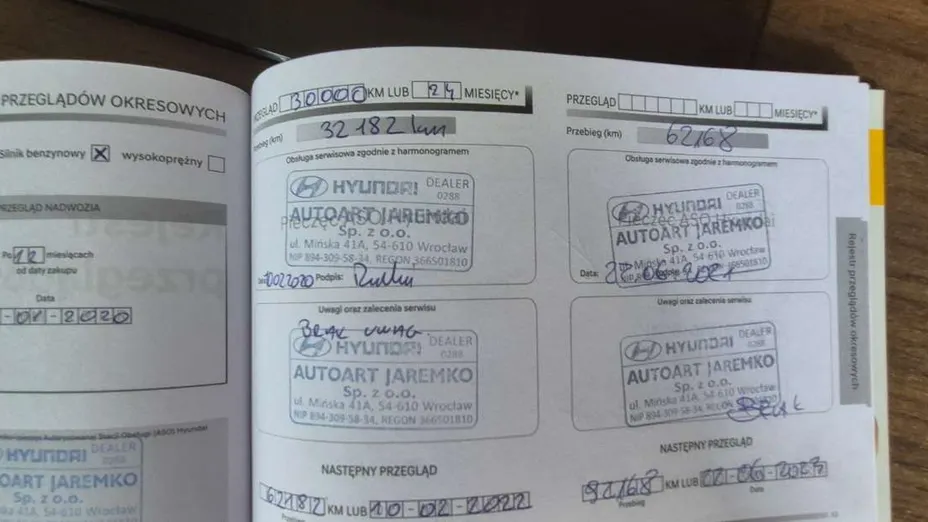 PRZEGLĄDÓW OKRESOWYCH
Silnik benzynowy X wysokoprężny
PRZEGLĄD NADWOZIA
Po 12 miesiącach
od daty zakupu
Data
-01-2020
HYUNDAI DEALER
0288
OART JAREMKO
Sp. z o.o.
PRZEGLĄD 30000 KM LUB 24 MIESIĘCY*
Przebieg (km) 32182 km
Obsługa serwisowa zgodnie z harmonogramem
HYUNDAI DEALER
0288
AUTOART JAREMKO
Sp. z o.o.
ul. Mińska 41A, 54-610 Wrocław
NIP 894-309-58-34, REGON 366501810
Data: 10022020 Podpis:
Uwagi oraz zalecenia serwisu
BRAK UWAG
HYUNDAI DEALER
0288
AUTOART JAREMKO
Sp. z o.o.
ul. Mińska 41A, 54-610 Wrocław
NIP 894-309-58-34, REGON 366501810
NASTĘPNY PRZEGLĄD
62182 KM LUB 10-02-2022
Przebieg
PRZEGLĄD KM LUB MIESIĘCY*
Przebieg (km) 62168
Obsługa serwisowa zgodnie z harmonogramem
Pieczęć ASO Hyundai
HYUNDAI DEALER
0288
AUTOART JAREMKO
Sp. z o.o.
ul. Mińska 41A, 54-610 Wrocław
NIP 894-309-58-34, REGON 366501810
Data: 06.2021
Uwagi oraz zalecenia serwisu
HYUNDAI DEALER
0288
AUTOART JAREMKO
Sp. z o.o.
ul. Mińska 41A, 54-610 Wrocław
NIP 894-309-58-34, REGON
BRAK
NASTĘPNY PRZEGLĄD
92168 KM LUB 22-06-2023
Przebieg Data
Rejestr przeglądów okresowych